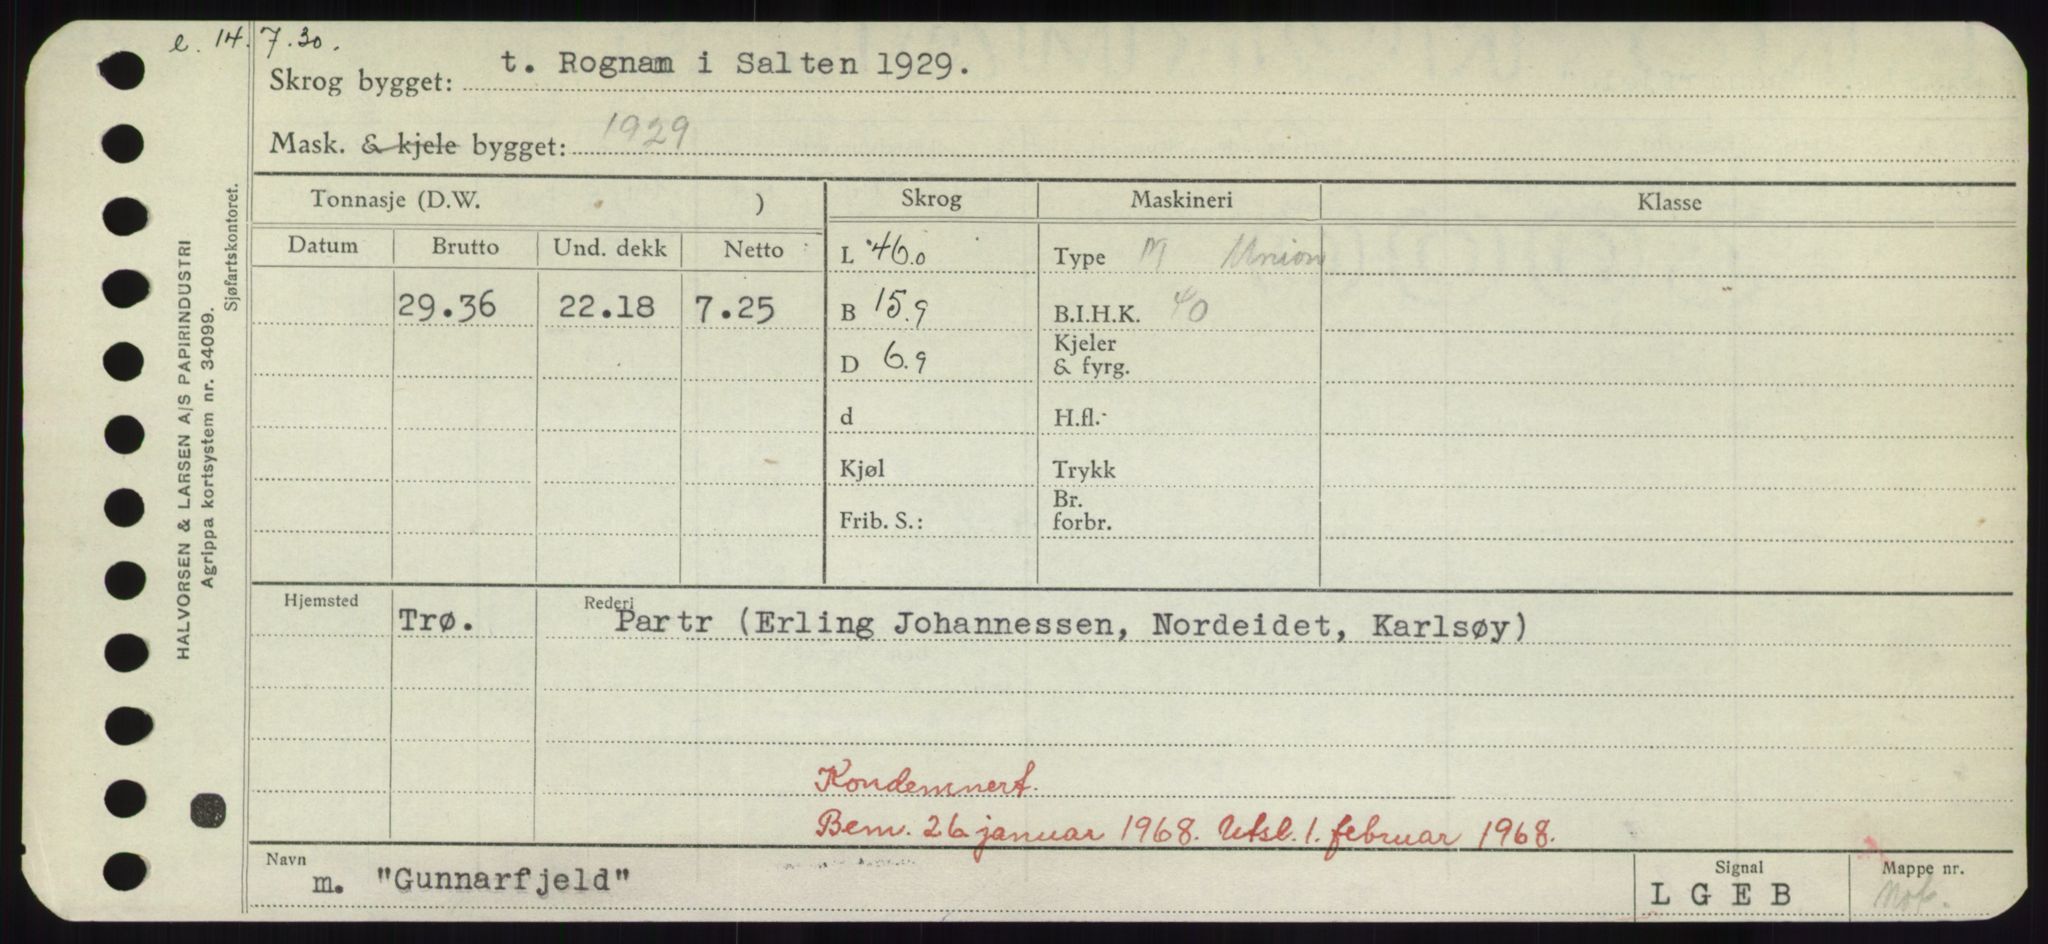 e. 14.7.30.
Skrog bygget: t. Rognan i Salten 1929.
Mask. & kjele bygget: 1929
Tonnasje (D.W. ) Skrog Maskineri Klasse
Datum Brutto Und. dekk Netto
L 46.0 Type M Union
29.36 22.18 7.25 B 15.9 B.I.H.K. 40
D 6.9 Kjeler & fyrg.
d H.fl.
Kjøl Trykk
Frib. S.: Br. forbr.
Hjemsted Trø. Rederi Partr (Erling Johannessen, Nordeidet, Karlsøy)
Kondemnert.
Bem. 26 januar 1968. Utsl. 1. februar 1968.
Navn m. "Gunnarfjeld" Signal L G E B Mappe nr. Mof.
HALVORSEN & LARSEN A/S PAPIRINDUSTRI
Agrippa kortsystem nr. 34099.
Sjøfartskontoret.